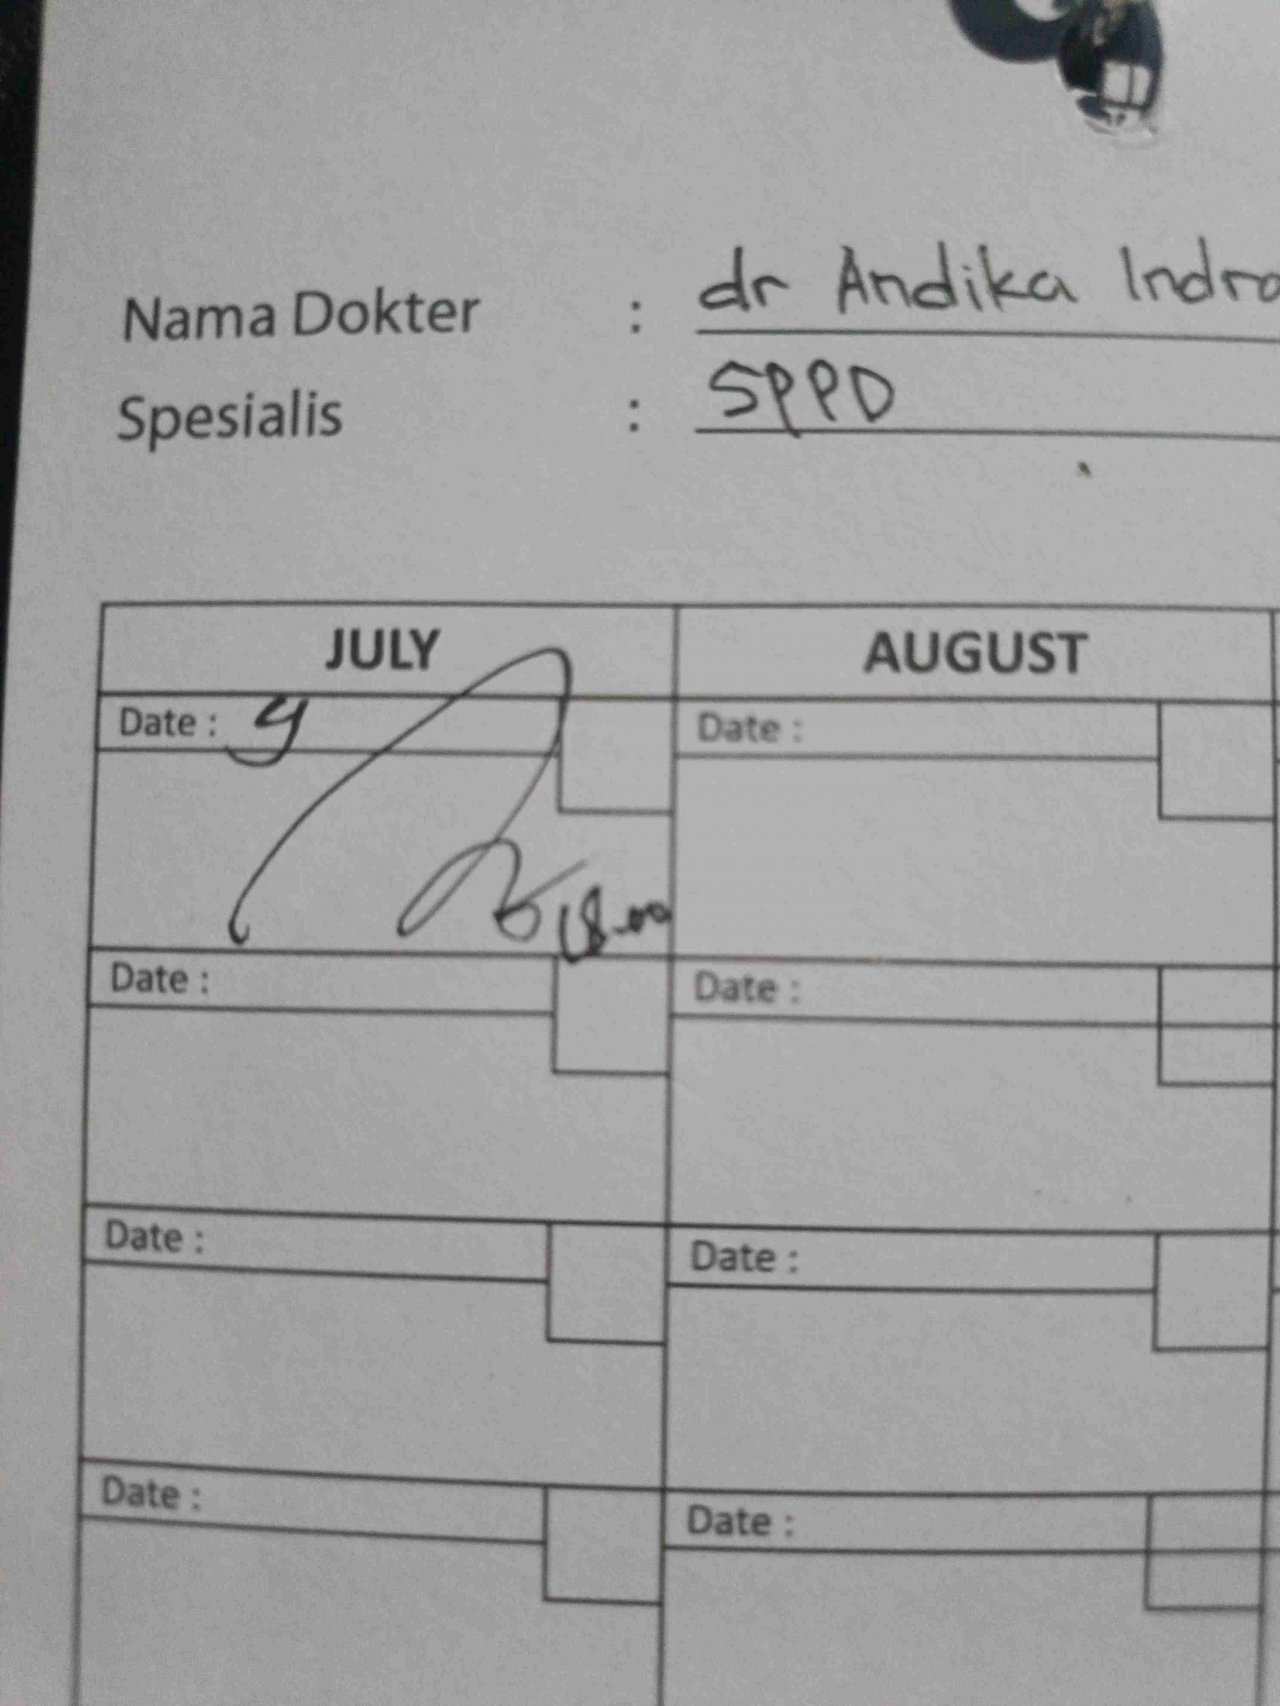 Nama Dokter : dr Andika Indra
Spesialis : SPPD
JULY AUGUST
Date : 9 Date :
18.00
Date : Date :
Date : Date :
Date : Date :